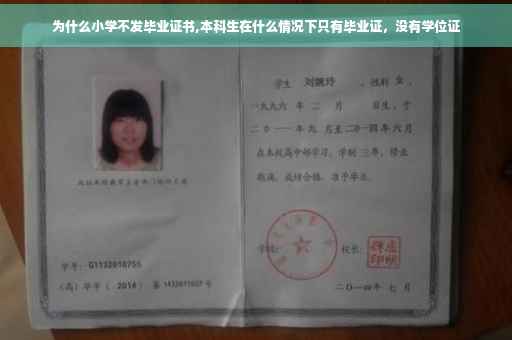 为什么小学不发毕业证书,本科生在什么情况下只有毕业证，没有学位证
学生 刘婉玲 ，性别 女 ，
一九九六 年 二 月 日生，于
二〇一一 年 九 月至 二〇一四 年 六 月
在本校高中部学习，学制 三 年，修业
期满，成绩合格，准予毕业。
学校：
校长：
学号：G1132010755
（高）毕字（ 2014 ）第 1432011007 号
二〇一四年 七 月